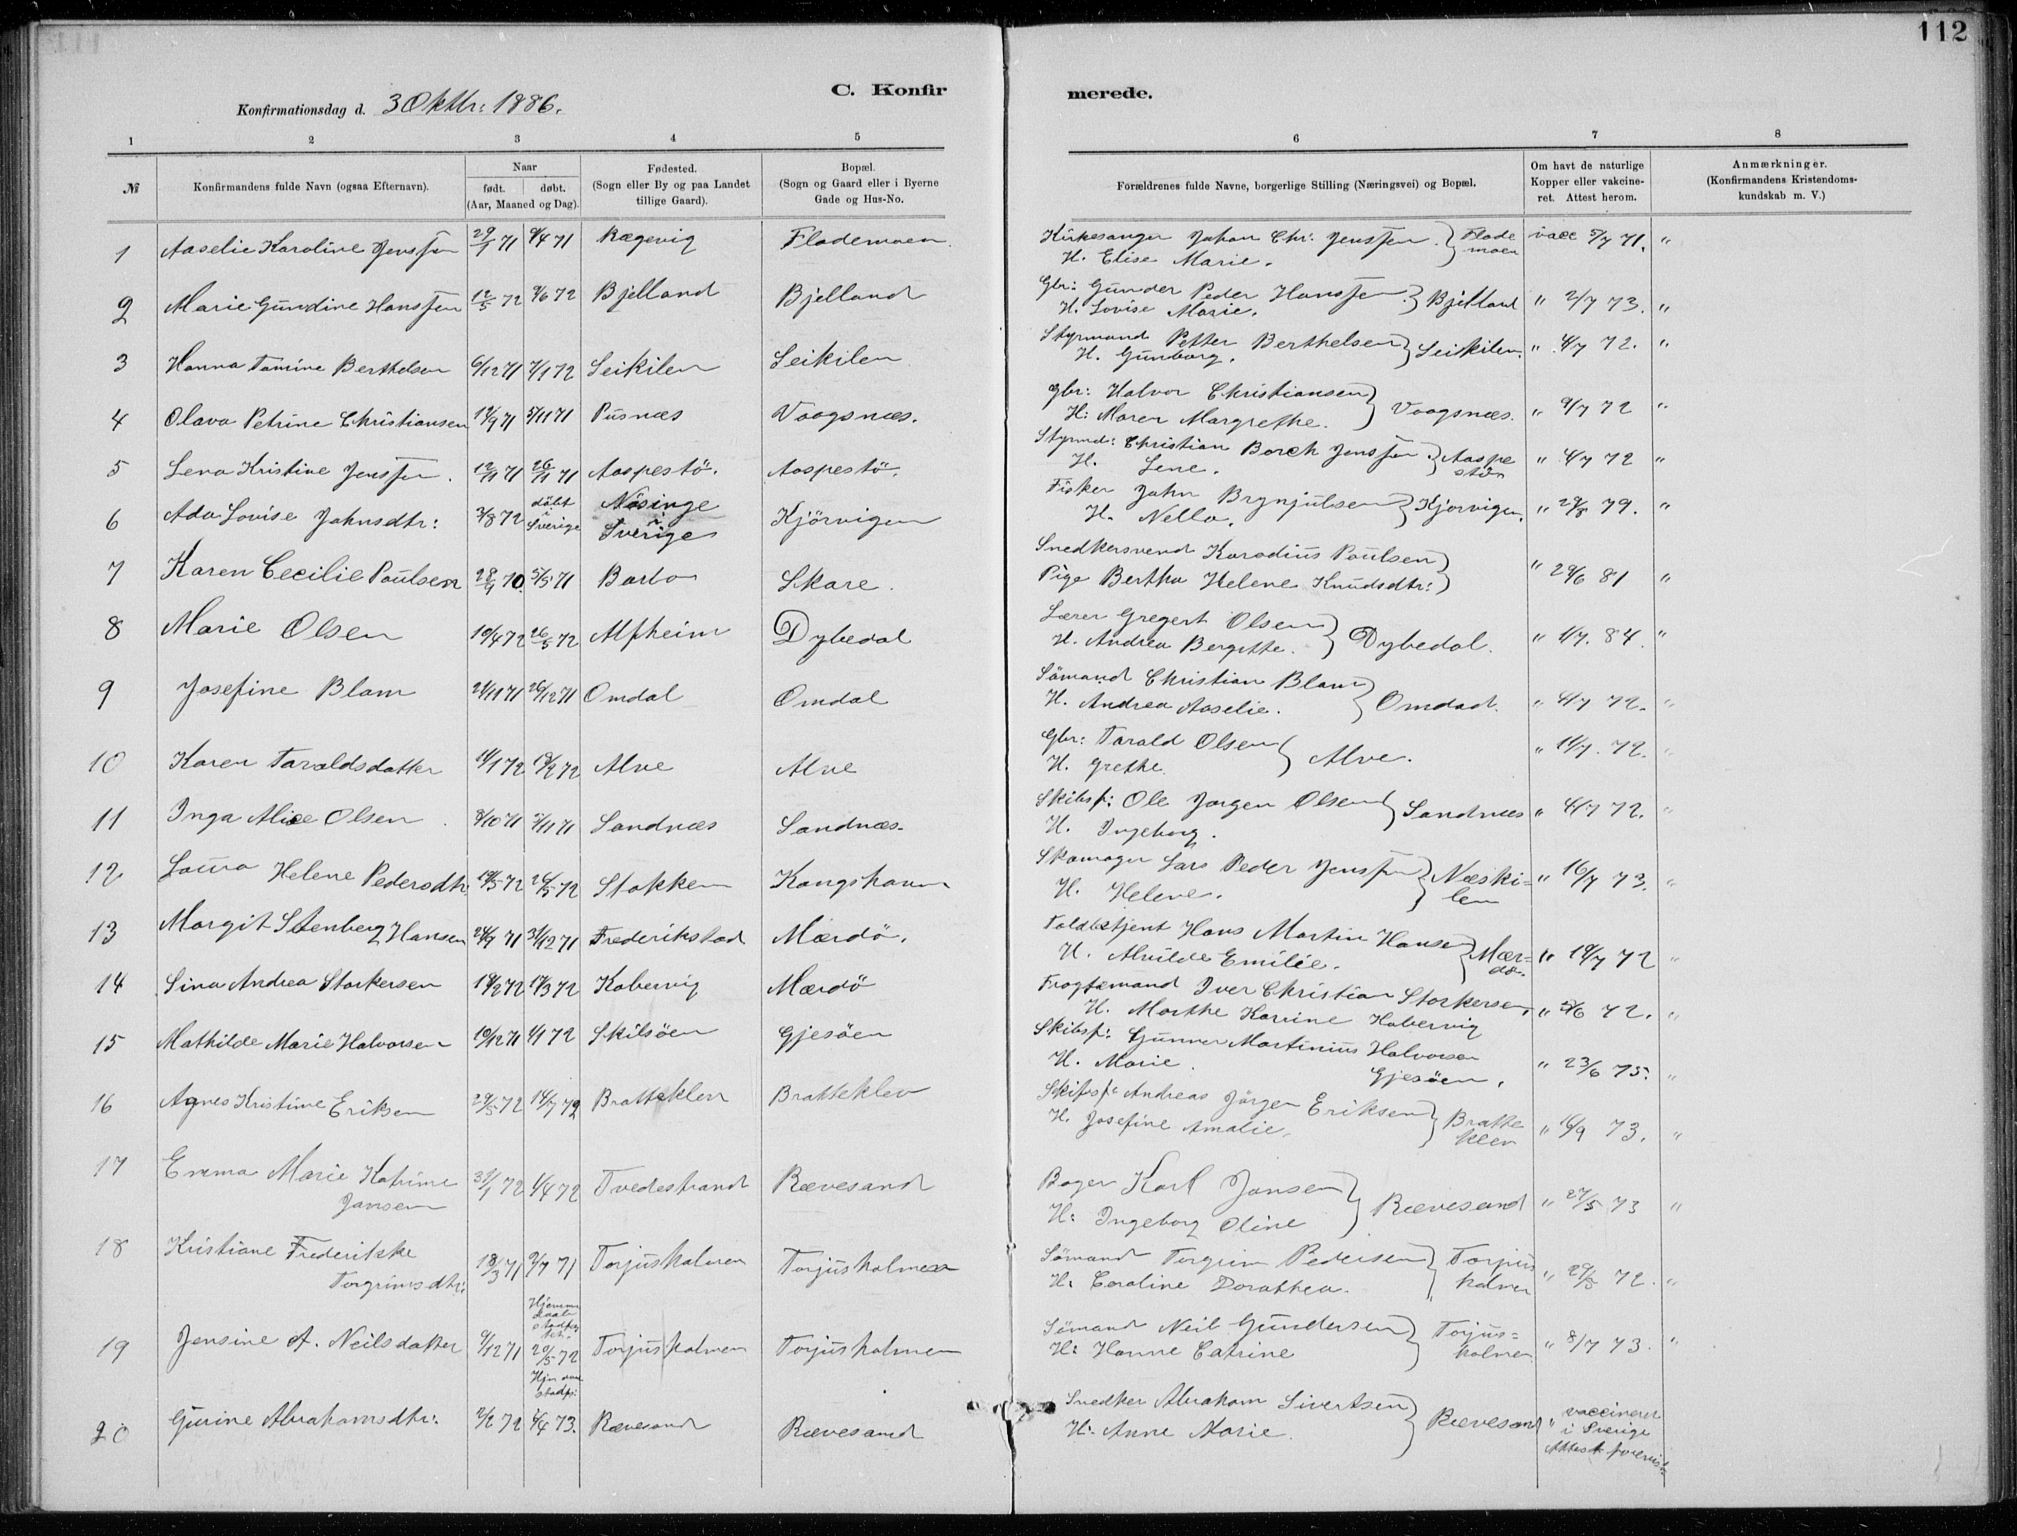 112
C. Konfirmerede.
Konfirmationsdag d. 3 Oktbr: 1886.
1 2 3 4 5 6 7 8
№ Konfirmandens fulde Navn (ogsaa Efternavn). Naar født. døbt. (Aar, Maaned og Dag). Fødested. (Sogn eller By og paa Landet tillige Gaard). Bopæl. (Sogn og Gaard eller i Byerne Gade og Hus-No. Forældrenes fulde Navne, borgerlige Stilling (Næringsvei) og Bopæl. Om havt de naturlige Kopper eller vakcineret. Attest herom. Anmærkninger. (Konfirmandens Kristendomskundskab m. V.)
1 Aaselie Karoline Jenssen 29/1 71 9/4 71 Rægevig Flademoen Kirkesanger Johan Chr: Jenssen Flademoen vacc 5/7 71. "
H. Elise Marie.
2 Marie Gundine Hanssen 12/5 72 9/6 72 Bjelland Bjelland Gbr: Gunder Peder Hanssen Bjelland " 2/7 73. "
H. Lovise Marie.
3 Hanna Tomine Berthelsen 6/12 71 7/1 72 Seikilen Seikilen Styrmand Petter Berthelsen Seikilen. " 4/7 72. "
H. Gunborg.
4 Olava Petrine Christiansen 19/9 71 5/11 71 Pusnæs Vaagsnæs. gbr: Halvor Christiansen Vaagsnæs. " 9/7 72 "
H: Maren Margrethe.
5 Lena Kristine Jenssen. 12/11 71 26/11 71 Aaspestö. Aaspestö. Styrmd: Christian Borch Jenssen. Aaspestö " 4/7 72 "
H. Lene.
6 Ada Lovise Johnsdtr: 3/8 72 döbt i Sverige Nösinge i Sverige Kjörvigen Fisker John Brynjulsen Kjörvigen. " 29/8 79. "
H. Nella.
7 Karen Cecilie Poulsen 28/9 70. 5/5 71 Barbo Skare. Snedkersvend Karodius Poulsen " 29/6 81 "
Pige Bertha Helene Knudsdtr:
8 Marie Olsen 10/4 72 26/5 72 Alfheim Dybedal Lærer Gregert Olsen Dybedal. " 1/7. 84. "
H. Andrea Bergitte.
9 Josefine Blam 21/11 71 26/12 71 Omdal Omdal Sömand Christian Blam Omdal. " 4/7 72. "
H. Andrea Aaselie.
10 Karen Taraldsdatter 11/1 72 18/2 72 Alve Alve Gbr: Tarald Olsen Alve. " 11/7. 72. "
H. Grethe.
11 Inga Alice Olsen 8/10 71 5/11 71 Sandnæs Sandnæs. Skibsf: Ole Jørgen Olsen Sandnæs " 4/7 72. "
H. Ingeborg.
12 Laura Helene Pedersdtr. 19/3 72 26/5 72 Stokken Kongshavn Skomager Lars Peder Jenssen Næskilen " 16/7 73. "
H. Helene.
13 Margit Stenberg Hansen 24/9 71 31/12 71 Frederikstad Mærdö. Toldbetjent Hans Martin Hansen Mærdö. " 19/7 72 "
H. Alvilde Emilie.
14 Sina Andrea Storkersen 19/2 72 17/3 72 Kobervig Mærdö Fragtemand Iver Christian Storkersen, " 5/6 72. "
H. Marthe Karine Kobervig
15 Mathilde Marie Halvorsen 10/12 71 1/1 72 Skilsöen Gjesöen Skibsf: Gunner Martinius Halvorsen " 23/6 75. "
H. Marie. Gjesöen.
16 Agnes Kristine Eriksen 29/5 72 14/7 72 Bratteklev Bratteklev Skibsf: Andreas Jörgen Eriksen Bratteklev " 16/9 73. "
H. Josefine Amalie.
17 Emma Marie Katrine Jansen 31/1 72 1/4 72 Tvedestrand Rævesand Bager Karl Jansen Rævesand " 27/5 73 "
H: Ingeborg Oline
18 Kristiane Frederikke Torgrimsdtr: 18/3 71 9/7 71 Torjusholmen Torjusholmen Sömand Torgrim Pedersen Torjusholmen " 29/5 72. "
H: Caroline Dorothea.
19 Jensine A. Neilsdatter 9/12 71 29/5 72 Torjusholmen Torjusholmen Sömand Neil Gundersen Torjusholmen " 8/7 73. "
H: Hanne Catrine
20 Gurine Abrahamsdtr: 2/2 72 7/4 73. Rævesand Rævesand Snedker Abraham Sivertsen Rævesand " vaccineret i Sverige Attest forevist
H: Anne Marie.